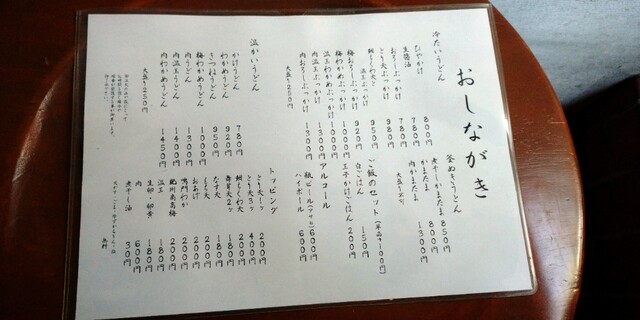 おしながき
冷たいうどん
ひやかけ 800円
生醤油 780円
おろしぶっかけ 780円
とり天ぶっかけ 980円
温玉ぶっかけ 920円
梅おろしぶっかけ 920円
梅わかめぶっかけ 1000円
温玉わかめぶっかけ 1000円
内温玉ぶっかけ 1300円
肉おろしぶっかけ 1300円
大盛り250円
温かいうどん
かけうどん 780円
わかめうどん 920円
きつねうどん 950円
梅わかめうどん 1000円
肉うどん 1300円
肉温玉うどん 1400円
肉わかめうどん 1450円
大盛り250円
釜ぬきうどん 850円
煮干しかまたま 850円
かまたま 800円
肉かまたま 1300円
ご飯のセット(単品+100円)
白ごはん 150円
玉子かけごはん 200円
アルコール
瓶ビール(アサヒ) 600円
ハイボール 600円
トッピング
とり天1ヶ 200円
とり天3ヶ 400円
鯛ちくわ天 200円
海苔天2ヶ 180円
なす天 180円
しそ天 200円
おあげ 200円
鳴門わかめ 200円
紀州南高梅 200円
温玉 180円
生卵・卵黄 180円
肉 600円
煮干し油 30円
無料